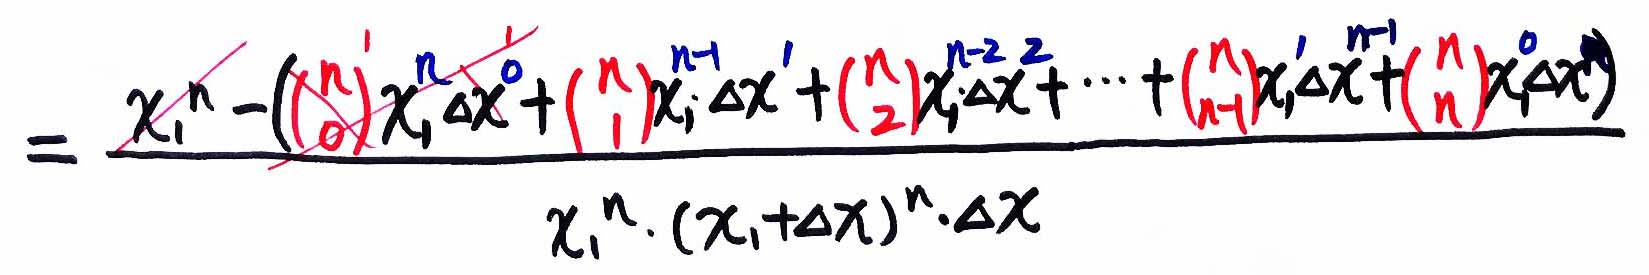 = \frac{x_1^n - \left(\binom{n}{0}^1 x_1^n \Delta x^0 {}^1 + \binom{n}{1} x_1^{n-1} \cdot \Delta x^1 + \binom{n}{2} x_1^{n-2} \cdot \Delta x^2 + \cdots + \binom{n}{n-1} x_1^1 \Delta x^{n-1} + \binom{n}{n} x_1^0 \Delta x^n\right)}{x_1^n \cdot (x_1 + \Delta x)^n \cdot \Delta x}